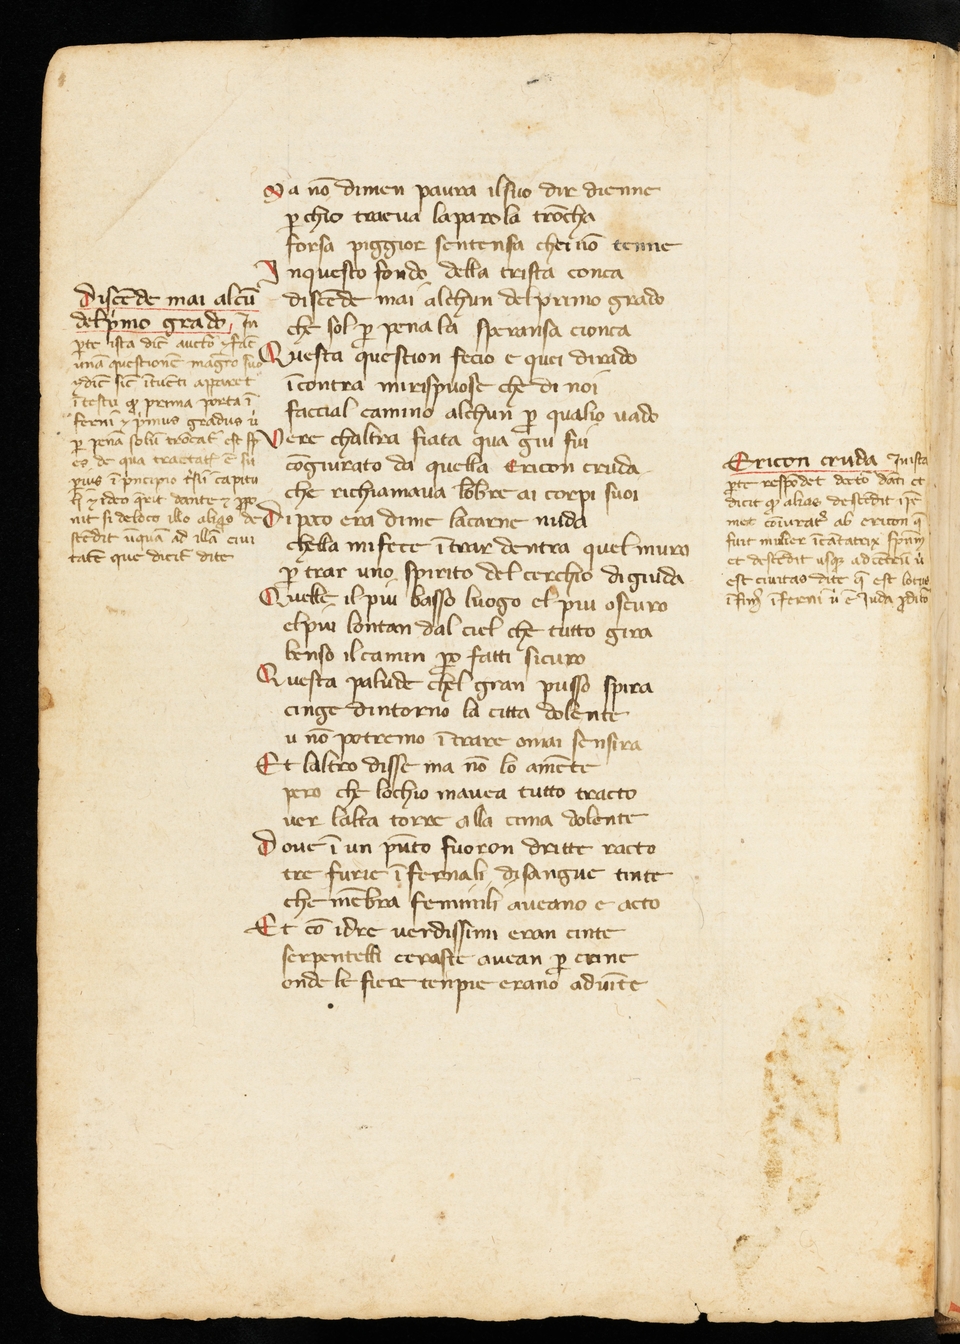 Ma nō dimen paura il suo dir dienne
p chio traeua la parola trōcha
forsa piggior sentensa chei nō tenne
Inquesto fondo della trista conca
discēde mai alchun del primo grado
che sol p pena la speransa cionca
Questa question fecio e quei dirado
īcontra mi rispuose che di noi
faccial camino alchun p qualio uado
Vere chaltra fiata qua giu fui
cōgiurato da quella Ericon cruda
che richiamaua lōbre ai corpi suoi
Di poco era dime la carne nuda
chella mi fece ītrar dentra quel muro
p trar uno spirito del cerchio di giuda
Quellē il piu basso luogo el piu oscuro
el piu lontan dal ciel che tutto gira
ben so il camin po fatti sicuro
Questa palude chel gran pusso spira
cinge dintorno la citta dolente
u nō potremo ītrare omai sensira
Et laltro disse ma nō lo amēte
pero che lochio mauea tutto tracto
uer lalta torre alla cima dolente
Doue ī un pūto fuoron dritte racto
tre furie īfernali di sangue tinte
che mēbra feminili aueano e acto
Et cō idre uerdissimi eran cinte
serpentelli ceraste auean p crine
onde le fiere tenpie erano aduīte
Discēde mai alcū
del pimo grado. In
pte ista dic auctō
unā questionē
apparet
ī testu prima porta ī
ferni primus gradus
p penā solū trōcat est sp
es de qua tractat ē su
pius ī pncipio capitu
dante
nit si de loco illo aliquo de
scēdit ūquā ad illā ciui
tatē que dicit dite
Ericon cruda In ista
pte respōdet
dicit alias descēdit
ab ericon
fuit mulier īcātatrix
et descēdit usque ad cētrū
est ciuitas dite que est locus
īferni iuda